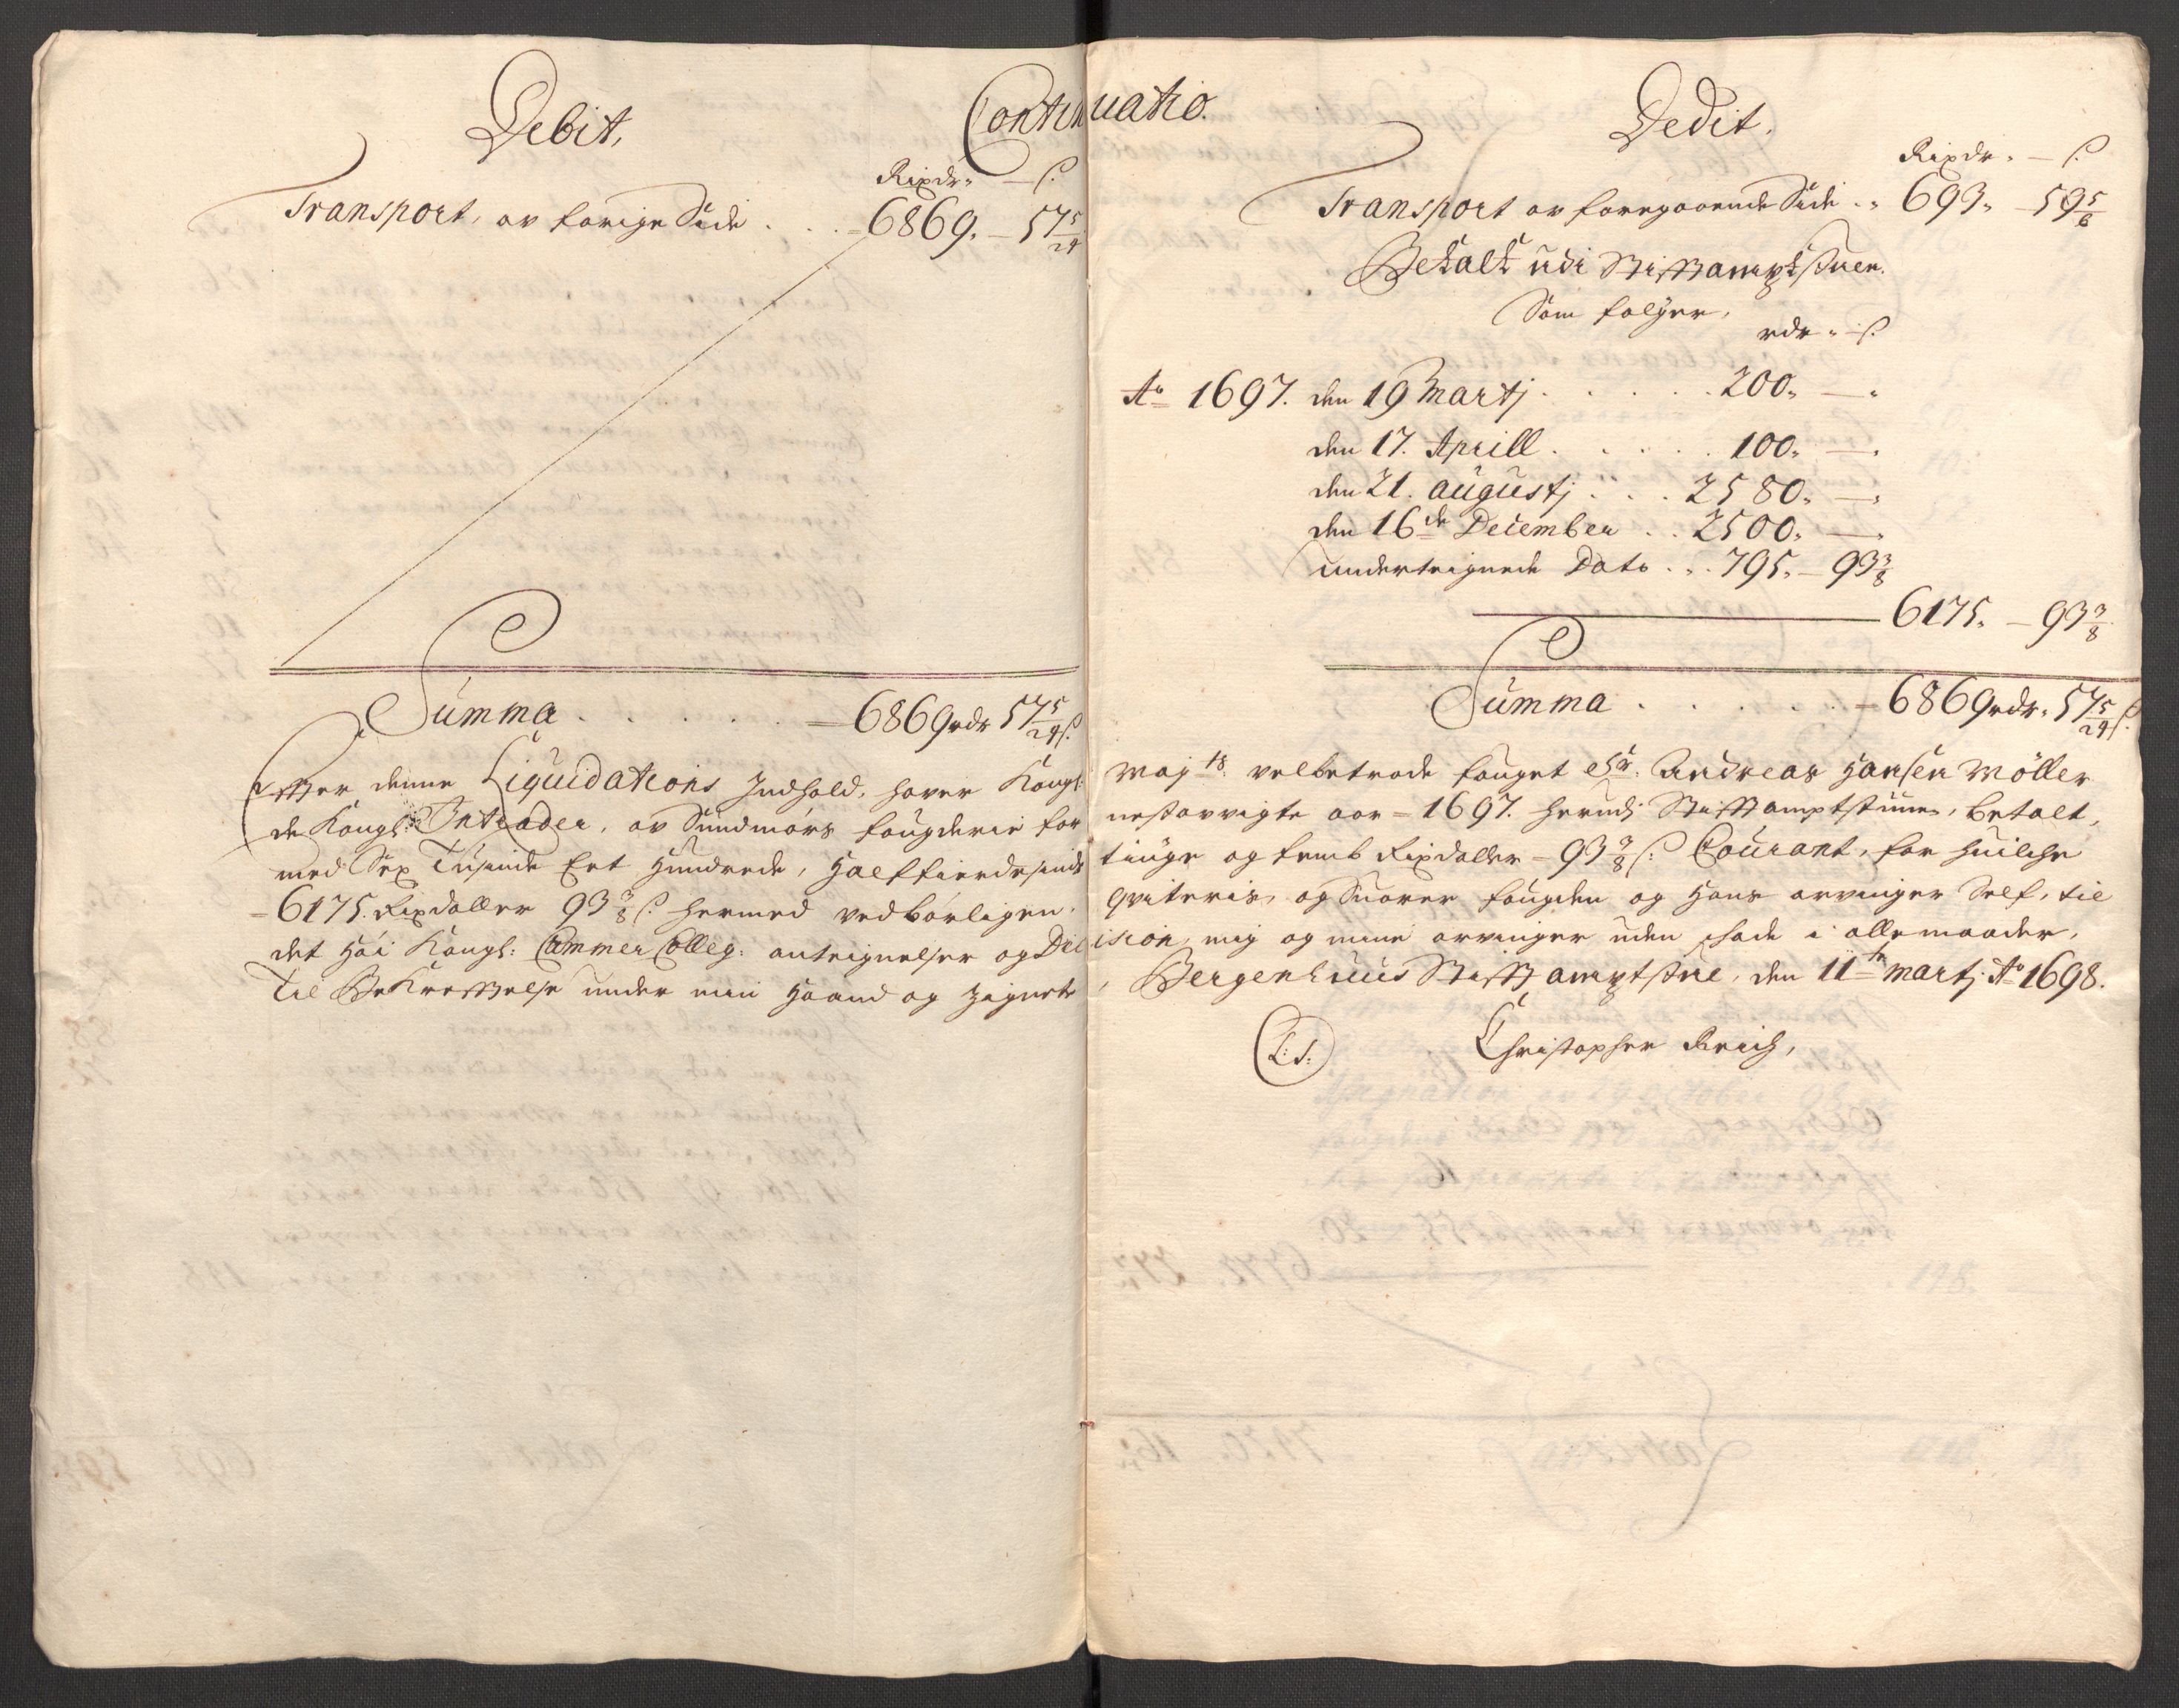 Continuatio.
Debit,
Rixdr. — ß.
Transport, av forige Side . . . 6869. — 57 5/24
Summa . . . . . = 6869 rdr 57 5/24 ß.
Dedit.
Rixdr. — ß.
Transport av foregaaende Side . . 693. — 59 5/6
Betalt udi Stifftamptstuen.
Som følger,
rdr. — ß.
Ao 1697. den 19 Martj . . . . . 200. —.
den 17. Aprill . . . . . 100. —.
den 21. Augustj . . . 2580. —.
den 16de December . . 2500. —.
underteignede Dato . . . 795. — 93 3/8
6175. — 93 3/8
Summa . . . . . = 6869 rdr. 57 5/24 ß.
Effter denne Liquidations Indhold, haver Kongl: Maj ts. velbetrode fouget Sr. Andreas Hansen Møller
de Kongl: Intrader, av Sundmørs fougderie for nestavvigte aar = 1697. herudj Stifftamptstuen, betalt,
med Sex Tusinde Eet Hundrede, Halffierdesinds tiuge og femb Rixdaller = 93 3/8 ß: Courant, for huilche
= 6175. Rixdaller 93 3/8 ß. hermed vedbørligen qviteris, og Suarer fougden og Hans arvinger Self, til
det Høi Kongl: Cammer Colleg: anteignelser og Decision, mig og mine arvinger uden skade i alle maader,
Til Bekrefftelse under min Haand og Zignete, Bergenhuus Stifftamptstue, den 11te Martj Ao 1698.
L: S:
Christopher Krich,